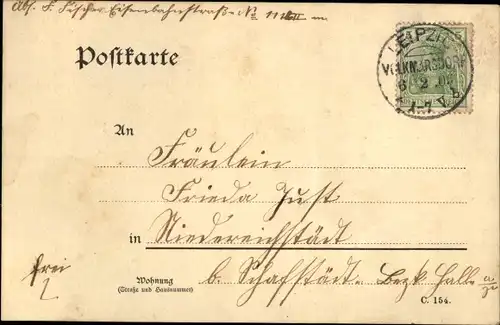 Abs. F. Fischer Eisenbahnstraße No 111 III
Postkarte
LEIPZIG
VOLKMARSDORF
6 2 06
7 V.
An
Fräulein
Frieda Just
in Niedereichstädt
frei
Wohnung
(Straße und Hausnummer)
b. Schafstädt. Bezk. Halle a/
C. 154.